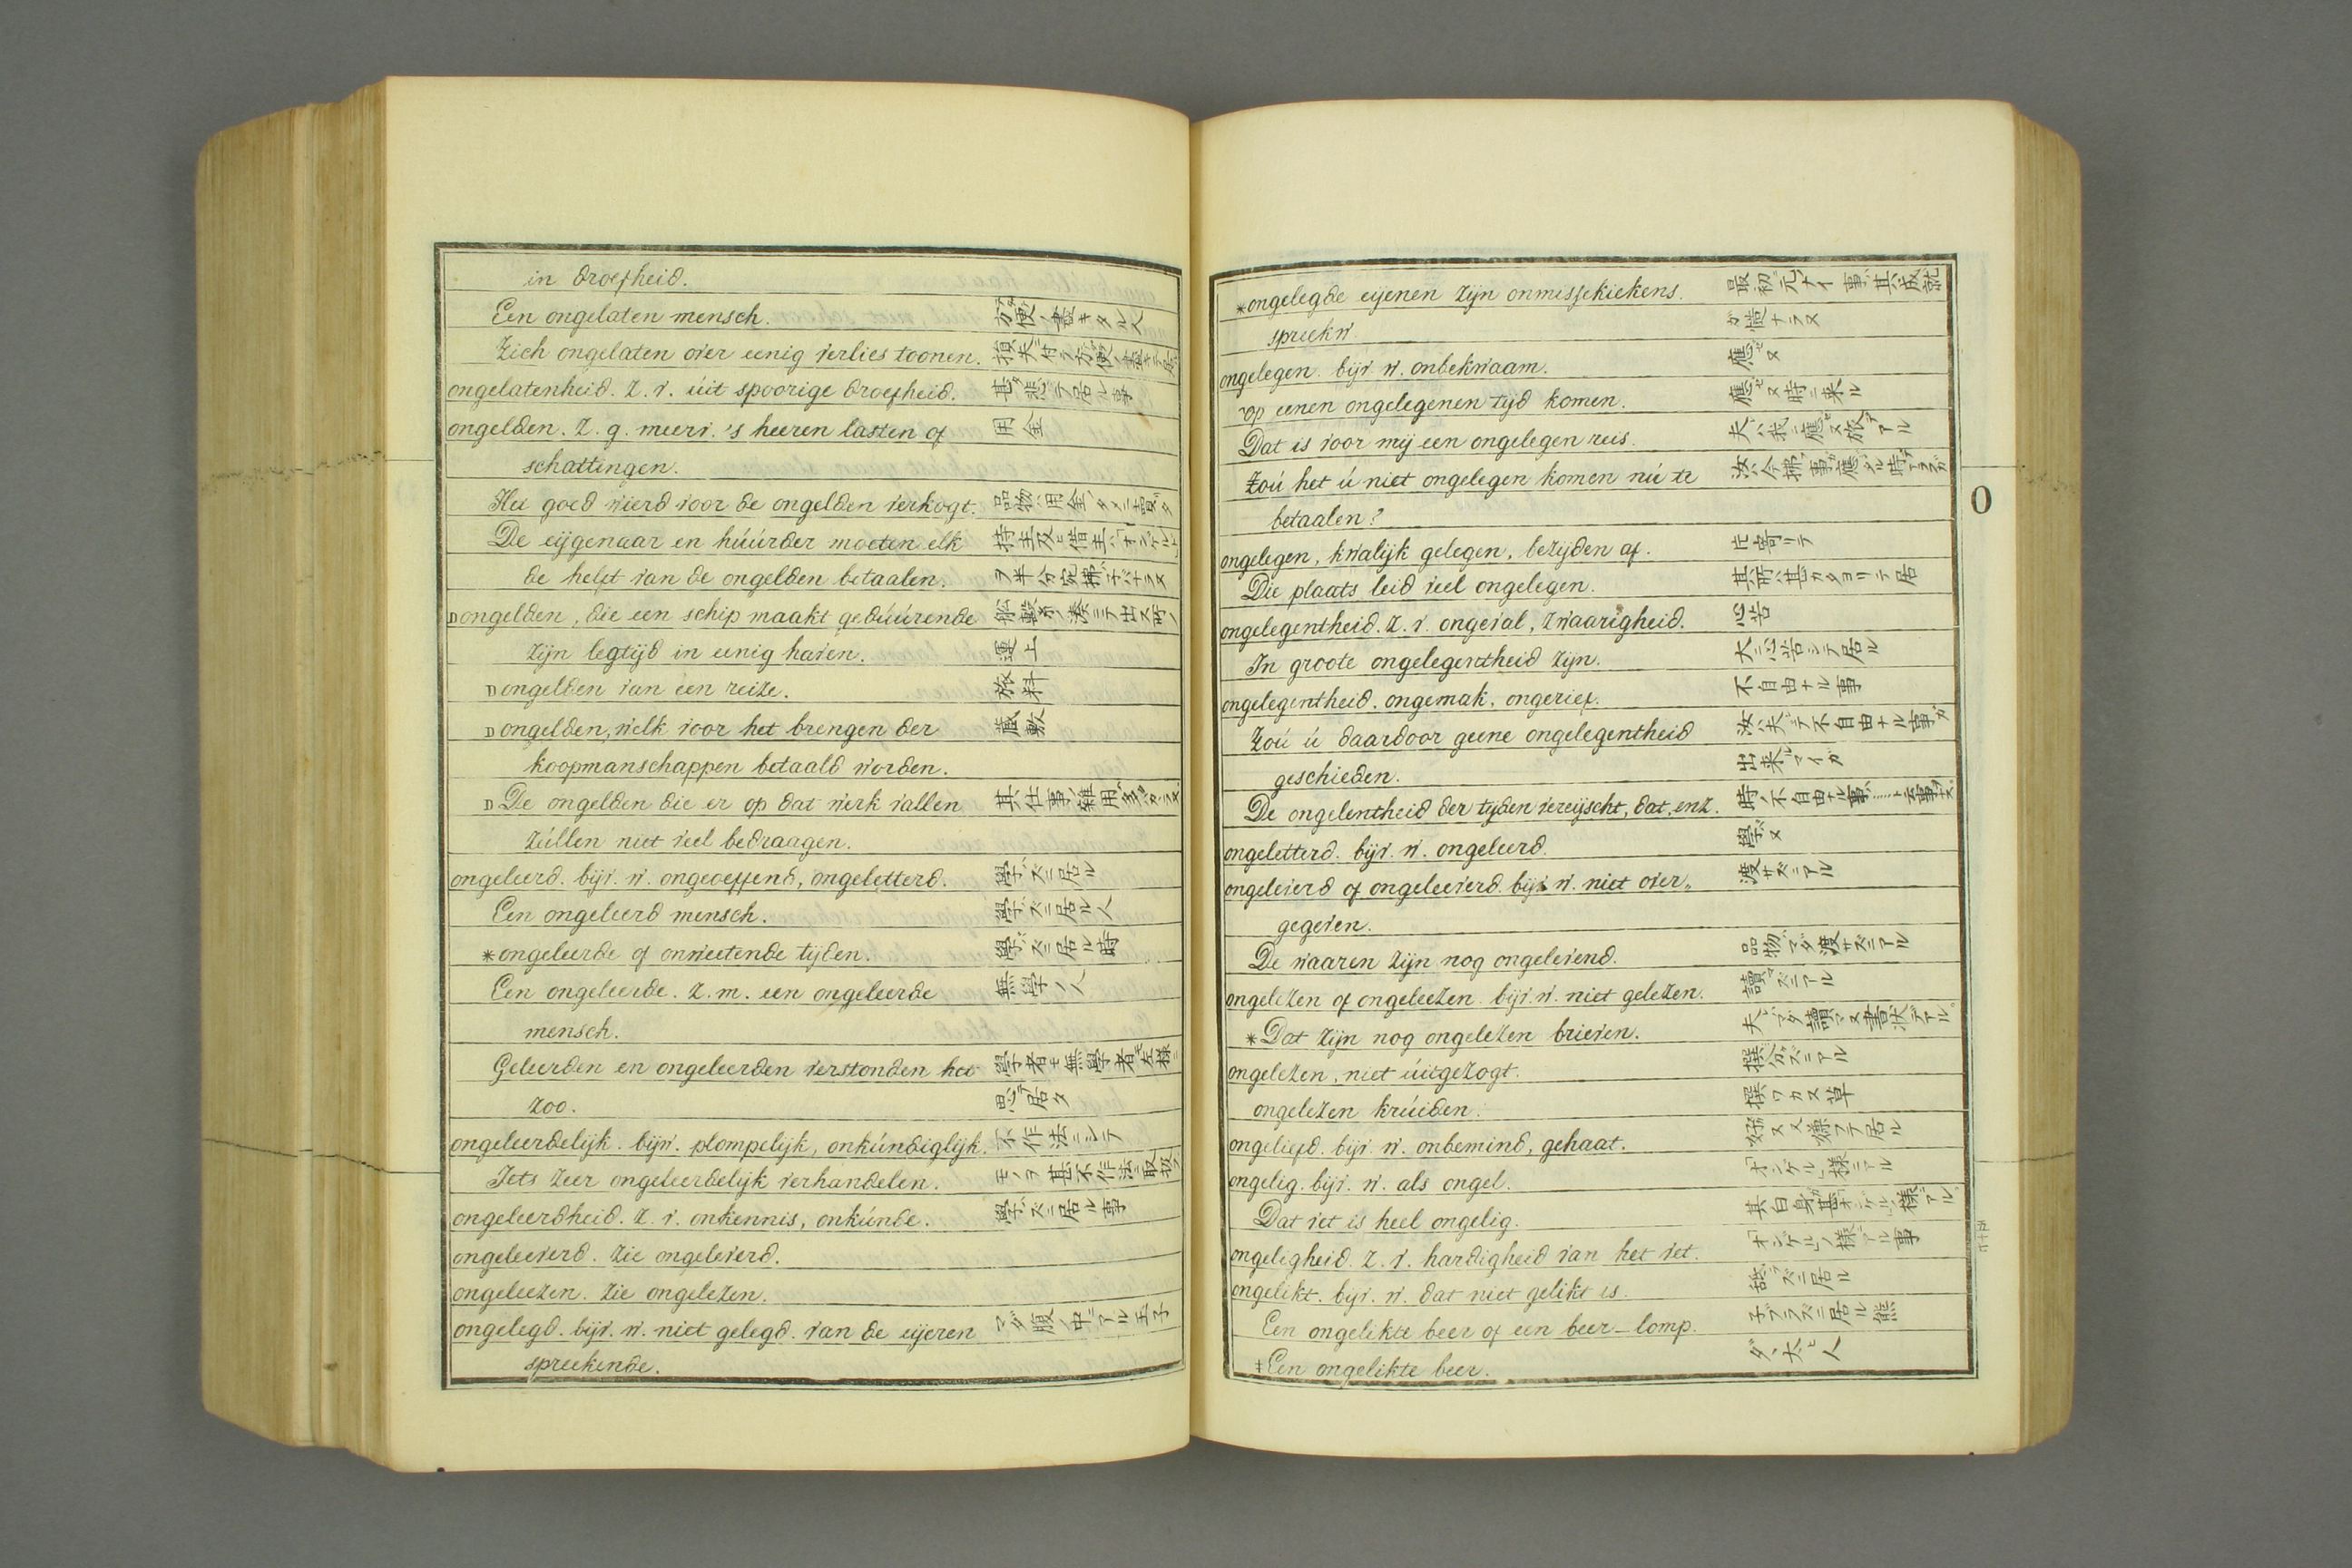 in droefheid.
Een ongelaten mensch. 方便ノ盡キタル人
Zich ongelaten over eenig verlies toonen. 損失ニ付テ方便ノ盡
ongelatenheid. z. v. úit spoorige droefheid. 甚ダ悲デ居ル事
ongelden. z. g. meerv. 's heeren lasten of 用金
schattingen.
Het goed wierd voor de ongelden verkogt. 品物ハ用金ノタメニ賣タ
De eijgenaar en húúrder moeten elk 持主及ビ借主ハ
de helft van de ongelden betaalen. ヲ半分宛拂子バナラヌ
D ongelden, die een schip maakt gedúúrende
zijn legtijd in eenig haven. 運上
D ongelden van een reize. 旅料
D ongelden, welk voor het brengen der 蔵敷
koopmanschappen betaald worden.
D De ongelden die er op dat werk vallen 其仕事ノ雜用ハ
zúllen niet veel bedraagen.
ongeleerd. bijv. w. ongeoeffend, ongeletterd. 學バズニ居ル
Een ongeleerd mensch. 學バズニ居ル人
*ongeleerde of onweetende tijden. 學バズニ居ル時
Een ongeleerde. z. m. een ongeleerde 無學ノ人
mensch.
Geleerden en ongeleerden verstonden het 學者モ無學者モ左様ニ
zoo. 思テ居タ
ongeleerdelijk. bijw. plompelijk, onkúndiglijk. 不作法ニシテ
Iets zeer ongeleerdelijk verhandelen. モノヲ甚不作法ニ取扱
ongeleerdheid. z. v. onkennis, onkúnde. 學バズニ居ル事
ongeleeverd. zie ongeleverd.
ongeleezen. zie ongelezen.
ongelegd. bijv. w. niet gelegd. van de eijeren マダ腹ノ中ニアル玉子
spreekende.
*ongelegde eijenen zijn onmissekiekens. 最初ノ元ノナイ事ハ其成就
spreekw. ガ慥ナラヌ
ongelegen. bijv. w. onbekwaam. 應ゼヌ
op eenen ongelegenen tijd komen. 應ゼヌ時ニ来ル
Dat is voor mij een ongelegen reis. 夫ハ我ニ應ゼヌ旅デアル
Zoú het ú niet ongelegen komen nú te 汝ハ今拂フ事ガ應ゼヌ時デ
betaalen?
ongelegen, kwalijk gelegen, bezijden af. 片寄リテ
Die plaats leid veel ongelegen. 其所ハ甚カタヨリテ居
ongelegentheid. z. v. ongeval, zwaarigheid. 心苦
In groote ongelegentheid zijn. 大ニ心苦シテ居ル
ongelegentheid. ongemak. ongerief. 不自由ナル事
Zoú ú daardoor geene ongelegentheid 汝ハ夫デ不自由ナル事ガ
geschieden. 出来マイカ
De ongelentheid der tijden vereijscht, dat, enz. 時ノ不自由ナル事ハ
ongeletterd. bijv. w. ongeleerd. 學バヌ
ongeleverd of ongeleeverd. bijv. w. niet over„ 渡サズニアル
gegeven.
De waaren zijn nog ongelevend. 品物ハマダ渡サズニアル
ongelezen of ongeleezen. bijv. w. niet gelezen. 讀マズニアル
*Dat zijn nog ongelezen brieven. 夫ハマダ讀マヌ書状デアル
ongelezen, niet úitgezogt. 撰分ズニアル
ongelezen krúiden. 撰ワカヌ草
ongeliefd. bijv. w. onbemind, gehaat. 好ヌ又嫌フテ居ル
ongelig. bijv. w. als ongel. 「オンゲル」ノ様ニアル
Dat vet is heel ongelig.
ongeligheid. z. v. hardigheid van het vet. 「オンゲル」ノ様デアル事
ongelikt. bijv. w. dat niet gelikt is. 舐ブラズニ居ル
Een ongelikte beer of een beer-lomp. 子ブラズニ居ル熊
‡Een ongelikte beer.
O